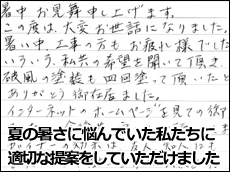 暑中お見舞申し上げます。
この度は、大変お世話になりました。
暑い中、工事の方もお疲れ様でした
いろいろ、私共の希望を聞いて頂き、
破風の塗装も四回塗って頂いたと
ありがとう御座居ました。
インターネットのホームページを見ての御
夏の暑さに悩んでいた私たちに
適切な提案をしていただけました